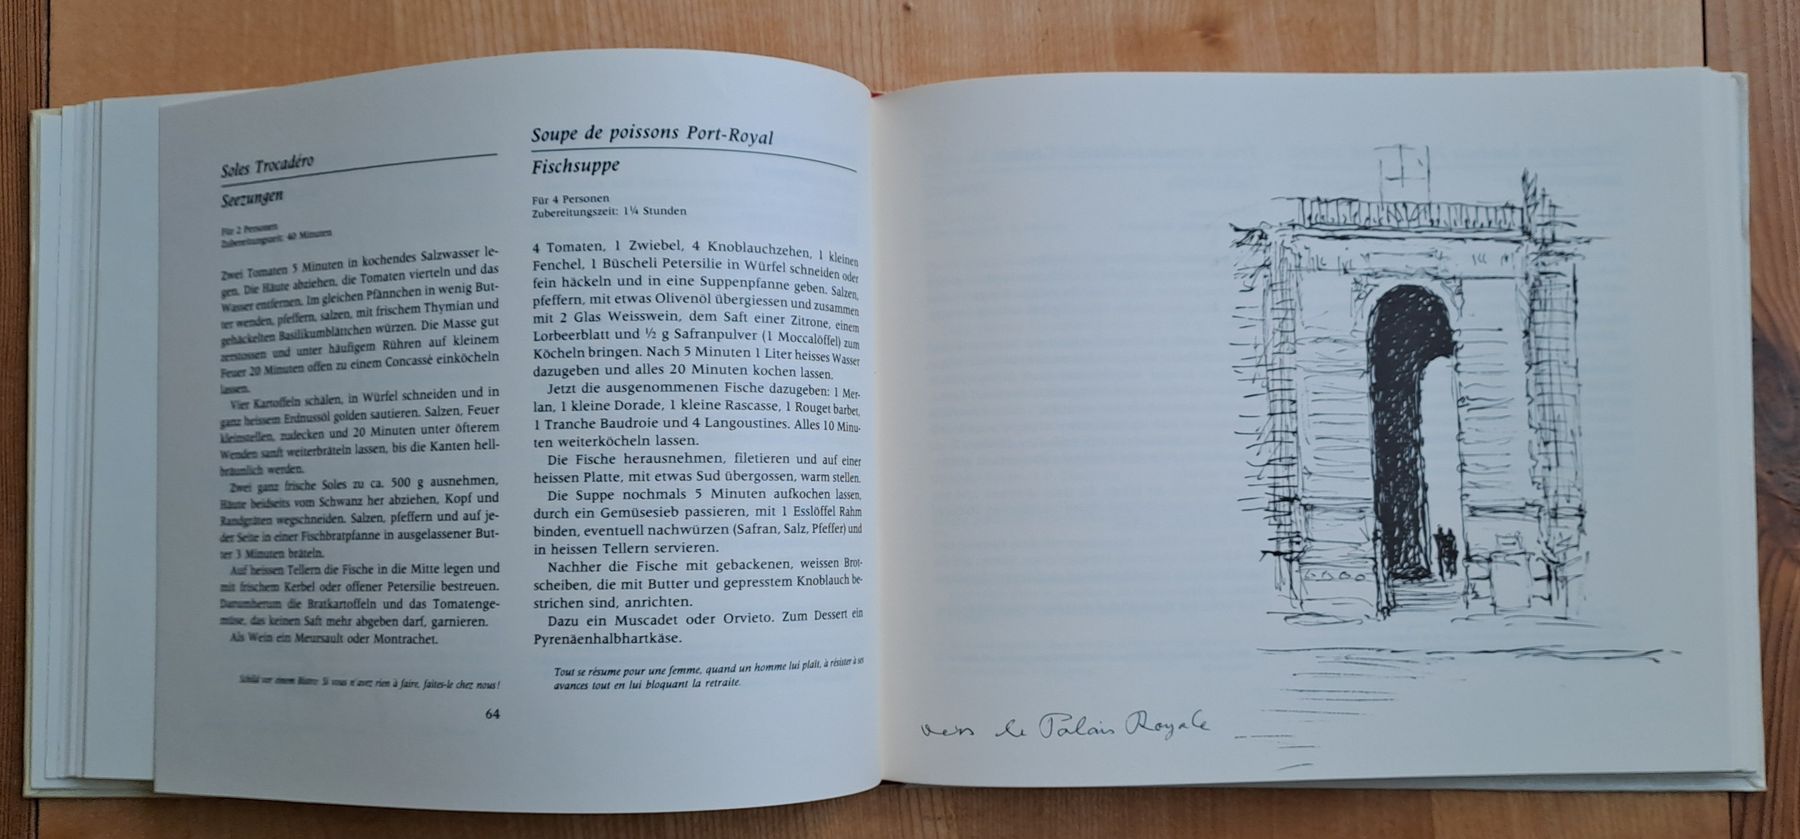 Soles Trocadéro
Seezungen
Für 2 Personen
Zubereitungszeit: 40 Minuten
Zwei Tomaten 5 Minuten in kochendes Salzwasser le-
gen. Die Häute abziehen, die Tomaten vierteln und das
Wasser entfernen. Im gleichen Pfännchen in wenig But-
ter wenden, pfeffern, salzen, mit frischem Thymian und
gehäckelten Basilikumblättchen würzen. Die Masse gut
zerstossen und unter häufigem Rühren auf kleinem
Feuer 20 Minuten offen zu einem Concassé einköcheln
lassen.
Vier Kartoffeln schälen, in Würfel schneiden und in
ganz heissem Erdnussöl golden sautieren. Salzen, Feuer
kleinstellen, zudecken und 20 Minuten unter öfterem
Wenden sanft weiterbräteln lassen, bis die Kanten hell-
bräunlich werden.
Zwei ganz frische Soles zu ca. 500 g ausnehmen,
Häute beidseits vom Schwanz her abziehen, Kopf und
Randgräten wegschneiden. Salzen, pfeffern und auf je-
der Seite in einer Fischbratpfanne in ausgelassener But-
ter 3 Minuten bräteln.
Auf heissen Tellern die Fische in die Mitte legen und
mit frischem Kerbel oder offener Petersilie bestreuen.
Darumherum die Bratkartoffeln und das Tomatenge-
müse, das keinen Saft mehr abgeben darf, garnieren.
Als Wein ein Meursault oder Montrachet.
Schild vor einem Bistro: Si vous n'avez rien à faire, faites-le chez nous!
64
Soupe de poissons Port-Royal
Fischsuppe
Für 4 Personen
Zubereitungszeit: 1¼ Stunden
4 Tomaten, 1 Zwiebel, 4 Knoblauchzehen, 1 kleinen
Fenchel, 1 Büscheli Petersilie in Würfel schneiden oder
fein häckeln und in eine Suppenpfanne geben. Salzen,
pfeffern, mit etwas Olivenöl übergiessen und zusammen
mit 2 Glas Weisswein, dem Saft einer Zitrone, einem
Lorbeerblatt und ½ g Safranpulver (1 Moccalöffel) zum
Köcheln bringen. Nach 5 Minuten 1 Liter heisses Wasser
dazugeben und alles 20 Minuten kochen lassen.
Jetzt die ausgenommenen Fische dazugeben: 1 Mer-
lan, 1 kleine Dorade, 1 kleine Rascasse, 1 Rouget barbet,
1 Tranche Baudroie und 4 Langoustines. Alles 10 Minu-
ten weiterköcheln lassen.
Die Fische herausnehmen, filetieren und auf einer
heissen Platte, mit etwas Sud übergossen, warm stellen.
Die Suppe nochmals 5 Minuten aufkochen lassen,
durch ein Gemüsesieb passieren, mit 1 Esslöffel Rahm
binden, eventuell nachwürzen (Safran, Salz, Pfeffer) und
in heissen Tellern servieren.
Nachher die Fische mit gebackenen, weissen Brot-
scheiben, die mit Butter und gepresstem Knoblauch be-
strichen sind, anrichten.
Dazu ein Muscadet oder Orvieto. Zum Dessert ein
Pyrenäenhalbhartkäse.
Tout se résume pour une femme, quand un homme lui plaît, à résister à ses
avances tout en lui bloquant la retraite.
vers le Palais Royale